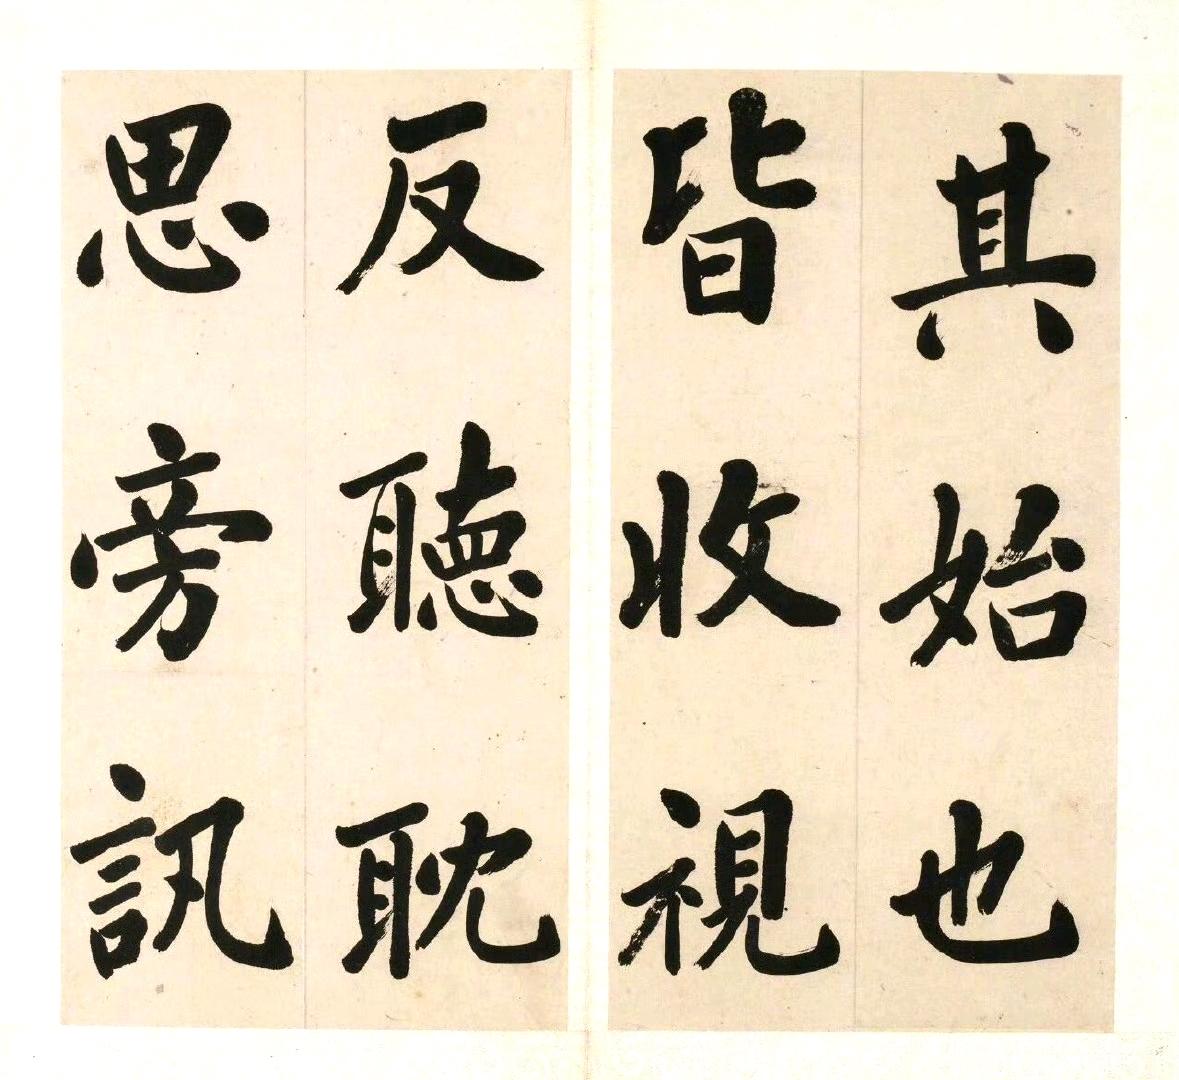 其始也
皆收視
反聽耽
思旁訊